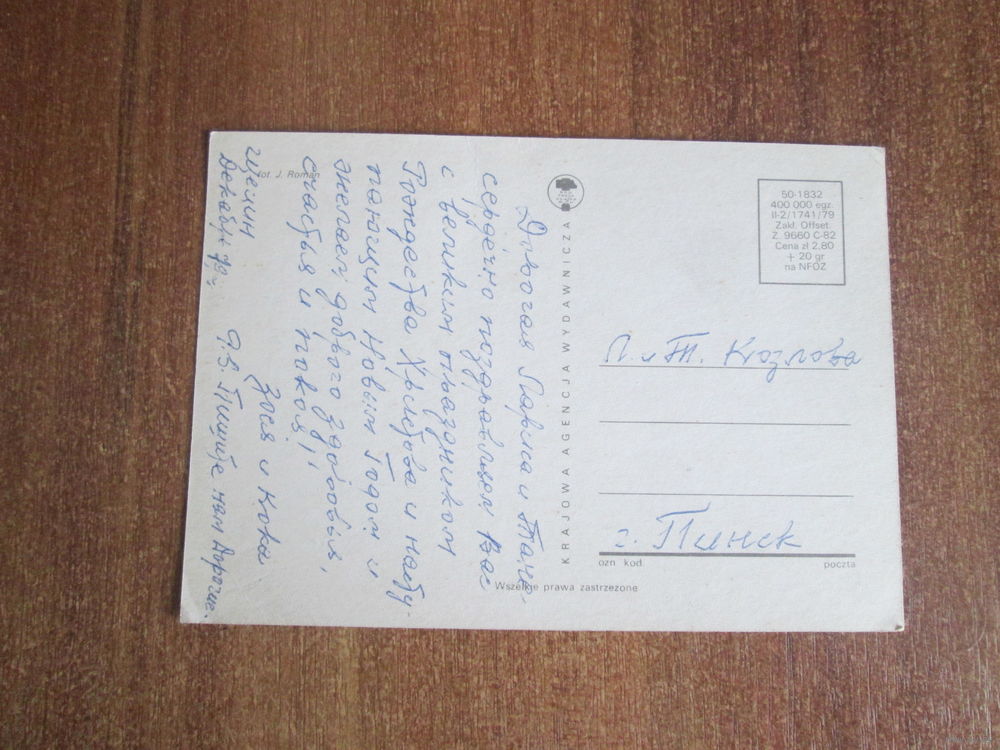 Дорогая Лариса и Таня,
сердечно поздравляем Вас
с великим праздником
Рождества Христова и насту-
пающим Новым Годом и
желаем доброго здоровья,
счастья и покоя!
Зося и
Щецин
Декабрь
P.S. Пишите нам дорогие.
fot. J. Roman
KRAJOWA AGENCJA WYDAWNICZA
50-1832
400 000 egz.
II-2/1741/79
Zakł. Offset.
Z. 9660 C-82
Cena zł 2,80
+ 20 gr
na NFOZ
Л. и Т. Козлова
г. Пинск
ozn kod
poczta
Wszelkie prawa zastrzeżone